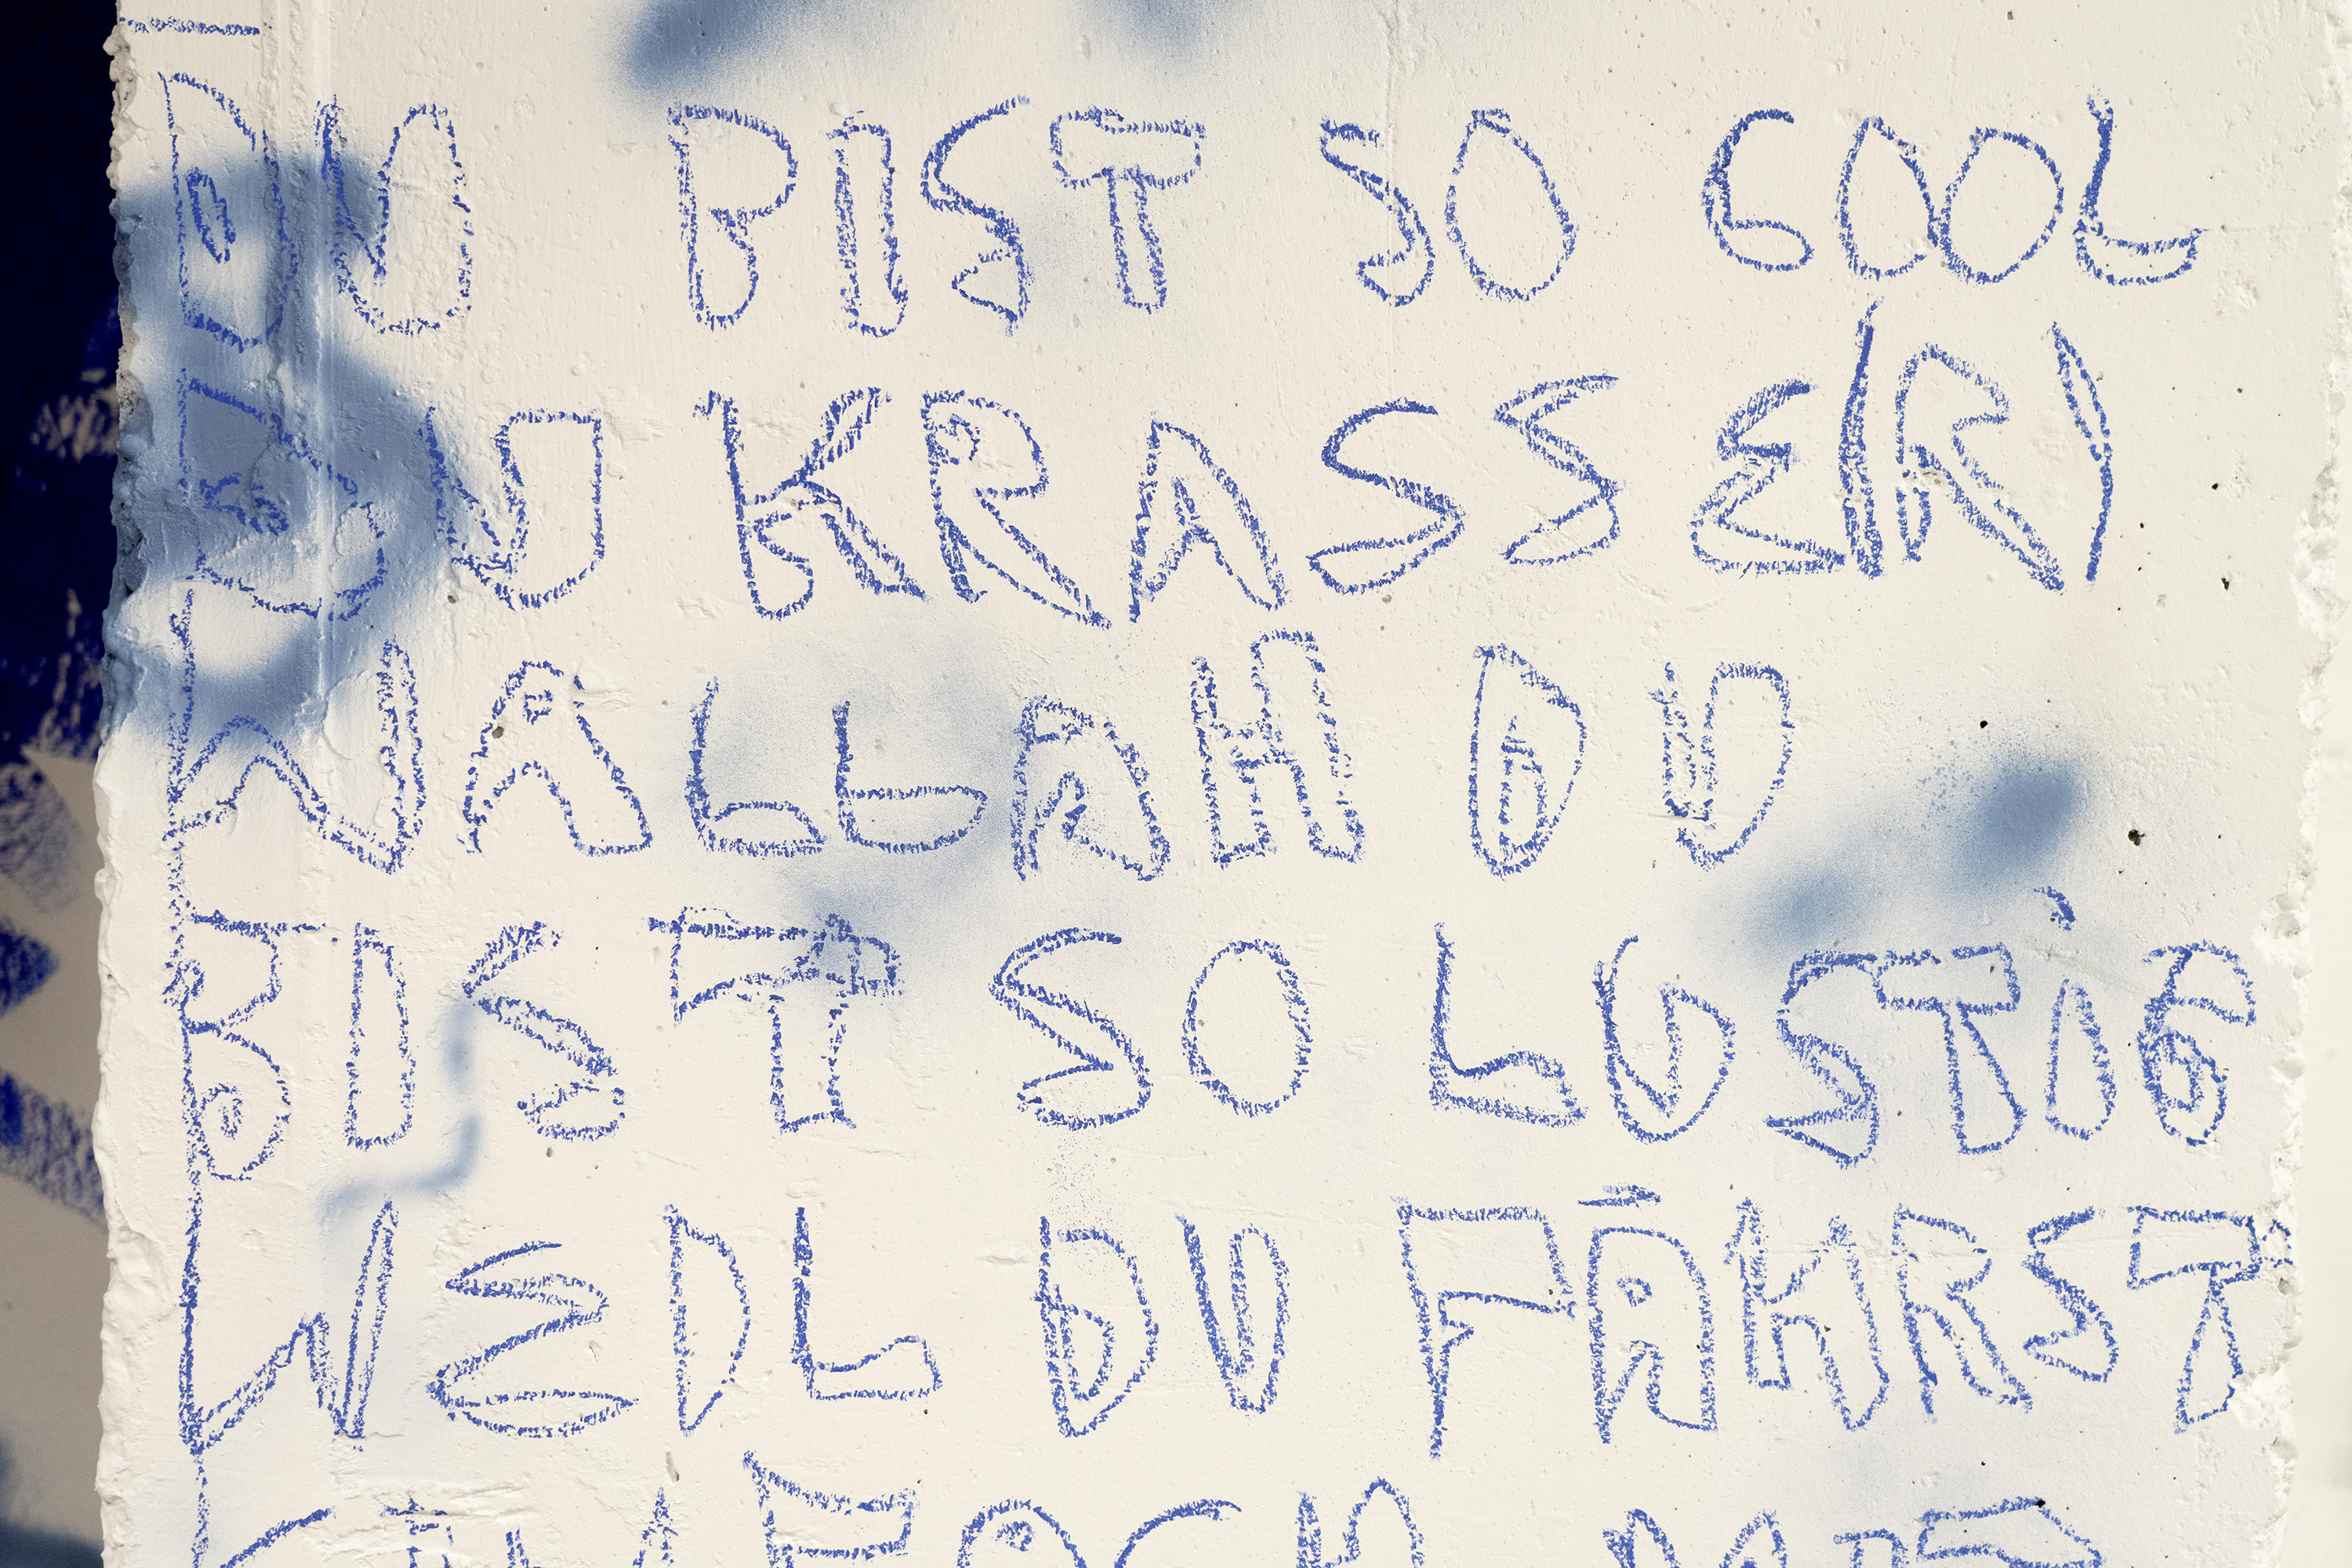 DU BIST SO COOL
DU KRASSE(R)
WALLAH DU
BIST SO LUSTIG
WEIL DU FÄHRST
EINFACH MIT